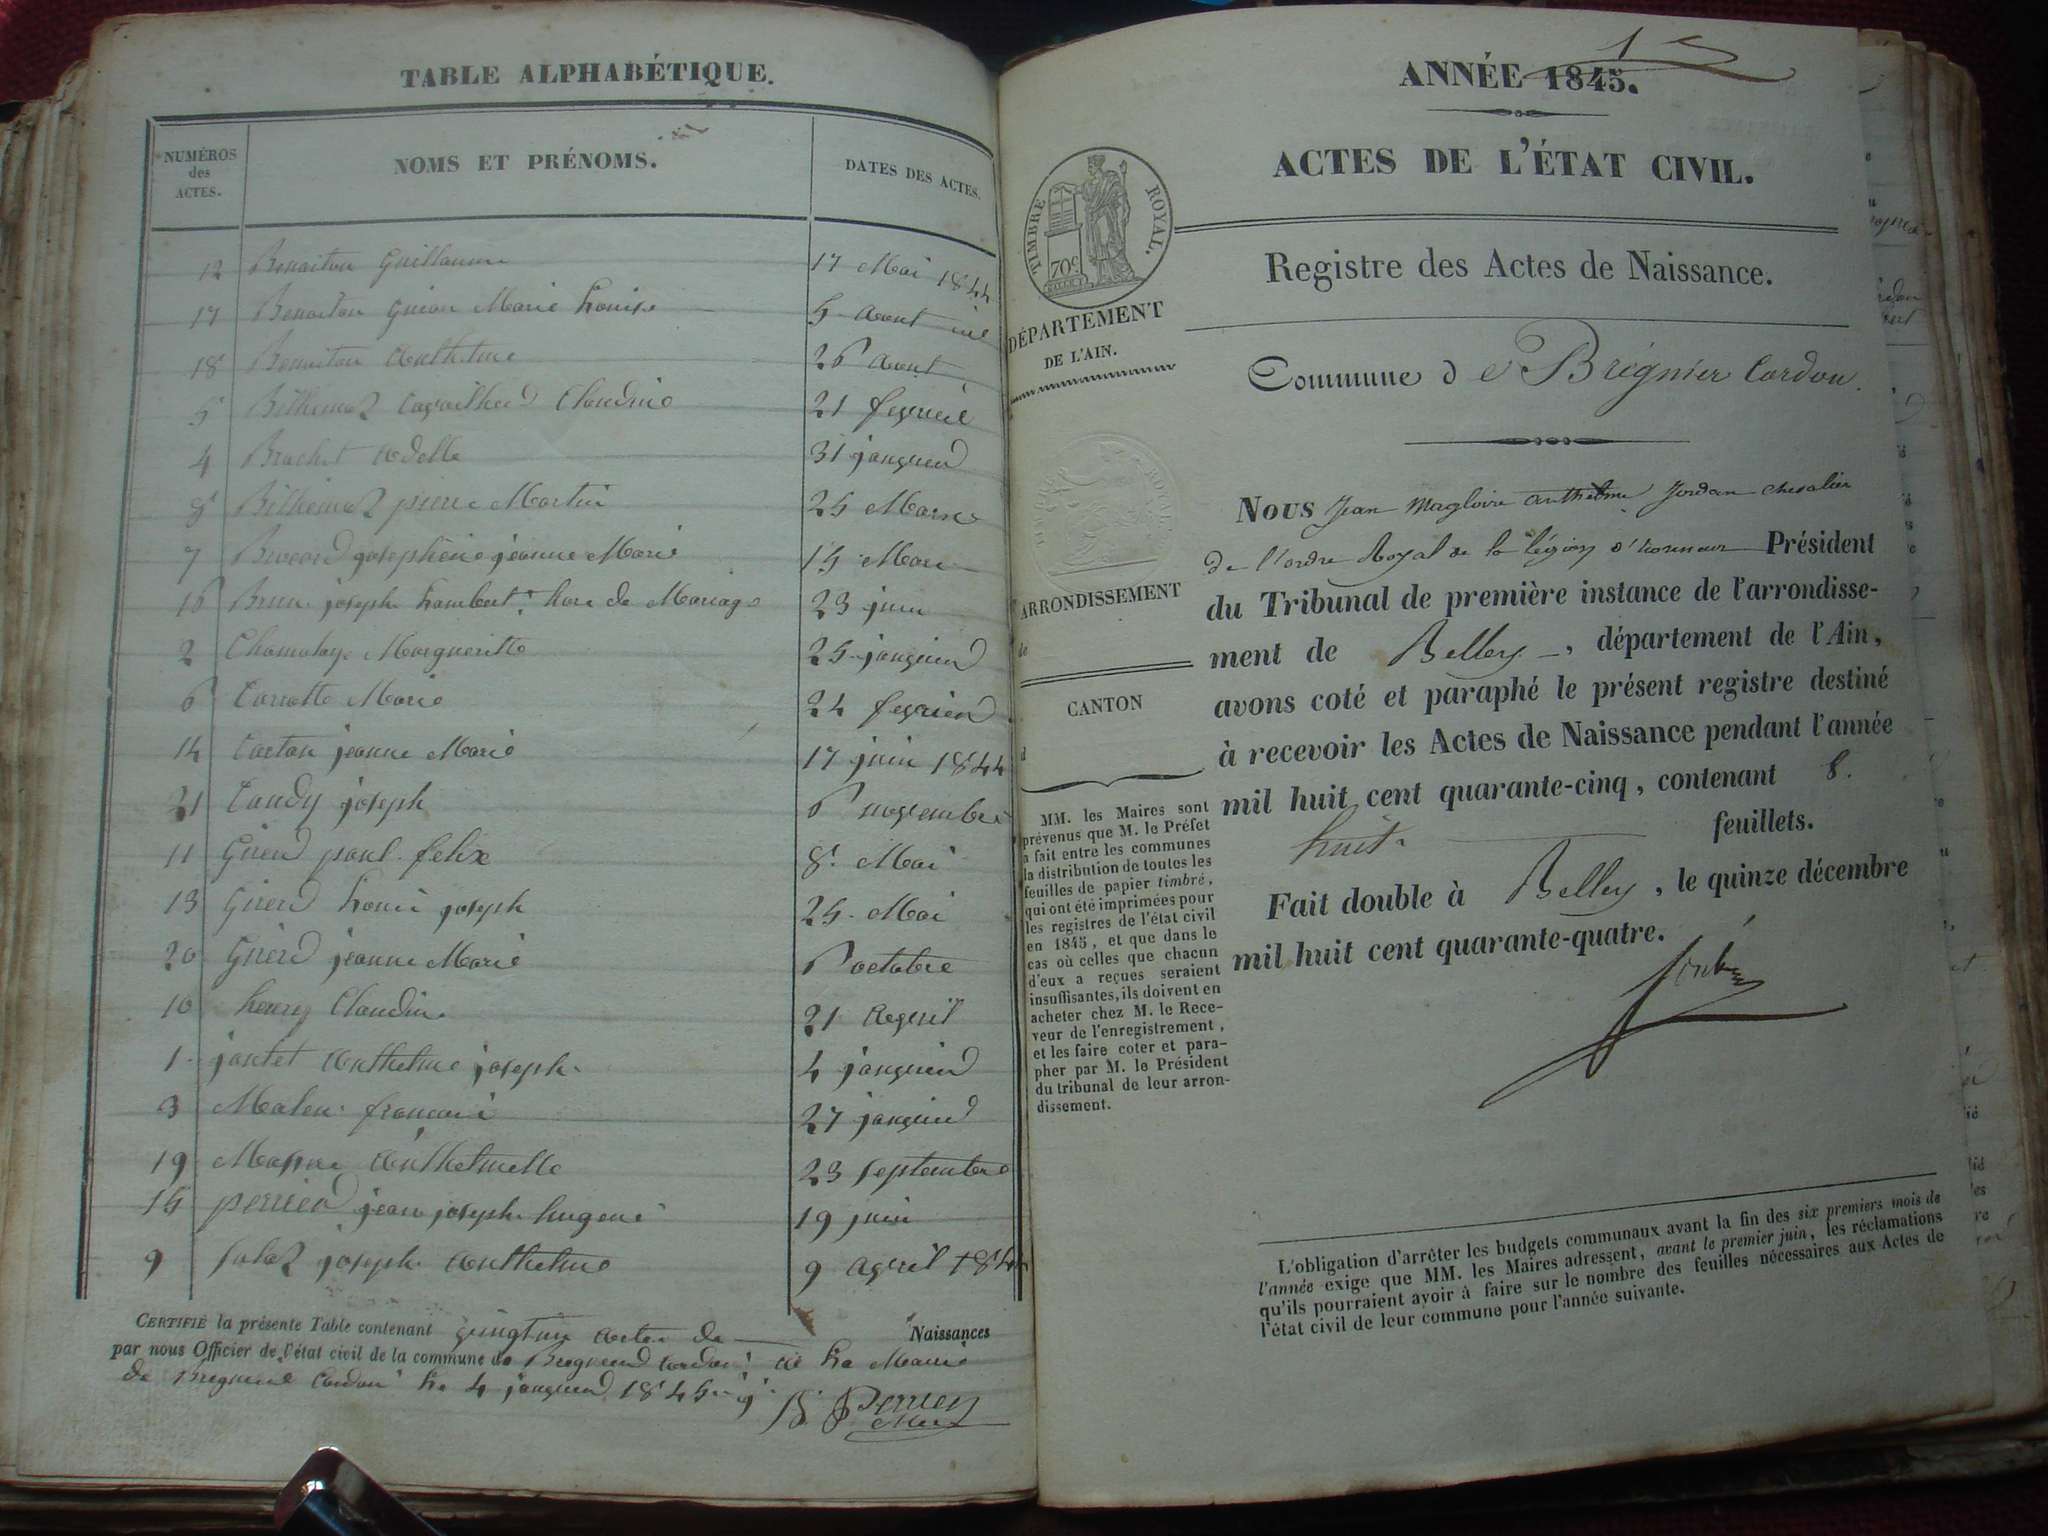 TABLE ALPHABÉTIQUE.
NUMÉROS des ACTES.
NOMS ET PRÉNOMS.
DATES DES ACTES.
12 Benoiton Guillaume 17 Mai 1844
17 Benoiton Guion Marie Louise 5 aout
18 Benoiton Anthelme 26 aout
5 Bilhemaz Claudine 21 fevrier
4 Brachet Adelle 31 janvier
8 Bilhemaz pierre Martin 25 Mars
7 Brocard josephine jeanne Marie 15 Mars
16 Brun joseph Lambert hors de Mariage 23 juin
2 Margueritte 25 janvier
6 Carrotte Marie 24 fevrier
14 Carton jeanne Marie 17 juin 1844
21 Candy joseph 6 novembre
11 Girerd paul felix 8 Mai
13 Girerd Louis joseph 25 Mai
20 Girerd jeanne Marie 6 octobre
10 henry Claudine 21 Avril
1 jantet Anthelme joseph 4 janvier
3 francois 27 janvier
19 Anthelmette 23 septembre
15 perrier jean joseph hugene 19 juin
9 joseph Anthelme 9 avril 1844
CERTIFIÉ la présente Table contenant vingt un actes de Naissances
par nous Officier de l'état civil de la commune de Bregnier Cordon A La Mairie
de Bregnier Cordon Le 4 janvier 1845
Perrier
ANNÉE 1845.
ACTES DE L'ÉTAT CIVIL.
TIMBRE ROYAL.
70c
Registre des Actes de Naissance.
DÉPARTEMENT
DE L'AIN.
Commune de Brégnier Cordon.
ARRONDISSEMENT
de
CANTON
d
MM. les Maires sont
prévenus que M. le Préfet
a fait entre les communes
la distribution de toutes les
feuilles de papier timbré,
qui ont été imprimées pour
les registres de l'état civil
en 1845, et que dans le
cas où celles que chacun
d'eux a reçues seraient
insuffisantes, ils doivent en
acheter chez M. le Rece-
veur de l'enregistrement,
et les faire coter et para-
pher par M. le Président
du tribunal de leur arron-
dissement.
NOUS Jean Magloire anthelme Jordan chevalier
de l'ordre Royal de la légion d'honneur Président
du Tribunal de première instance de l'arrondisse-
ment de Belley, département de l'Ain,
avons coté et paraphé le présent registre destiné
à recevoir les Actes de Naissance pendant l'année
mil huit cent quarante-cinq, contenant 8.
huit feuillets.
Fait double à Belley, le quinze décembre
mil huit cent quarante-quatre.
L'obligation d'arrêter les budgets communaux avant la fin des six premiers mois de
l'année exige que MM. les Maires adressent, avant le premier juin, les réclamations
qu'ils pourraient avoir à faire sur le nombre des feuilles nécessaires aux Actes de
l'état civil de leur commune pour l'année suivante.